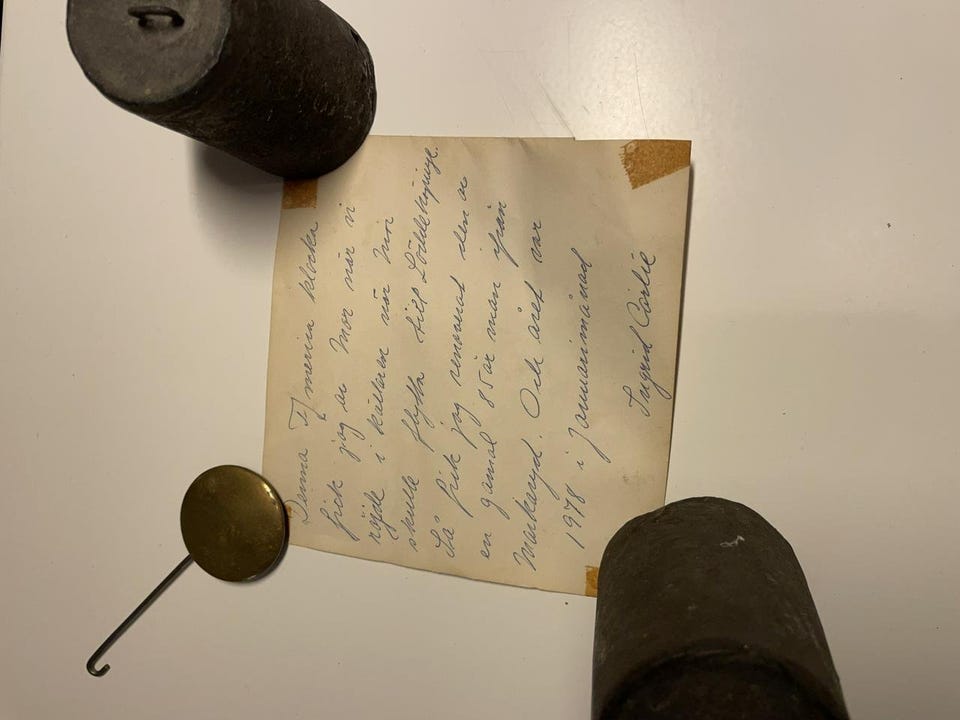 Denna Fjmerin klocka
fick jag av Mor när vi
röjde i källaren när Mor
skulle flytta till Löddeköpinge.
Så fick jag renoverat den av
en gamal 85år man ifrån
Markaryd. Och året var
1978 i Januarimånad
Ingrid Carlié